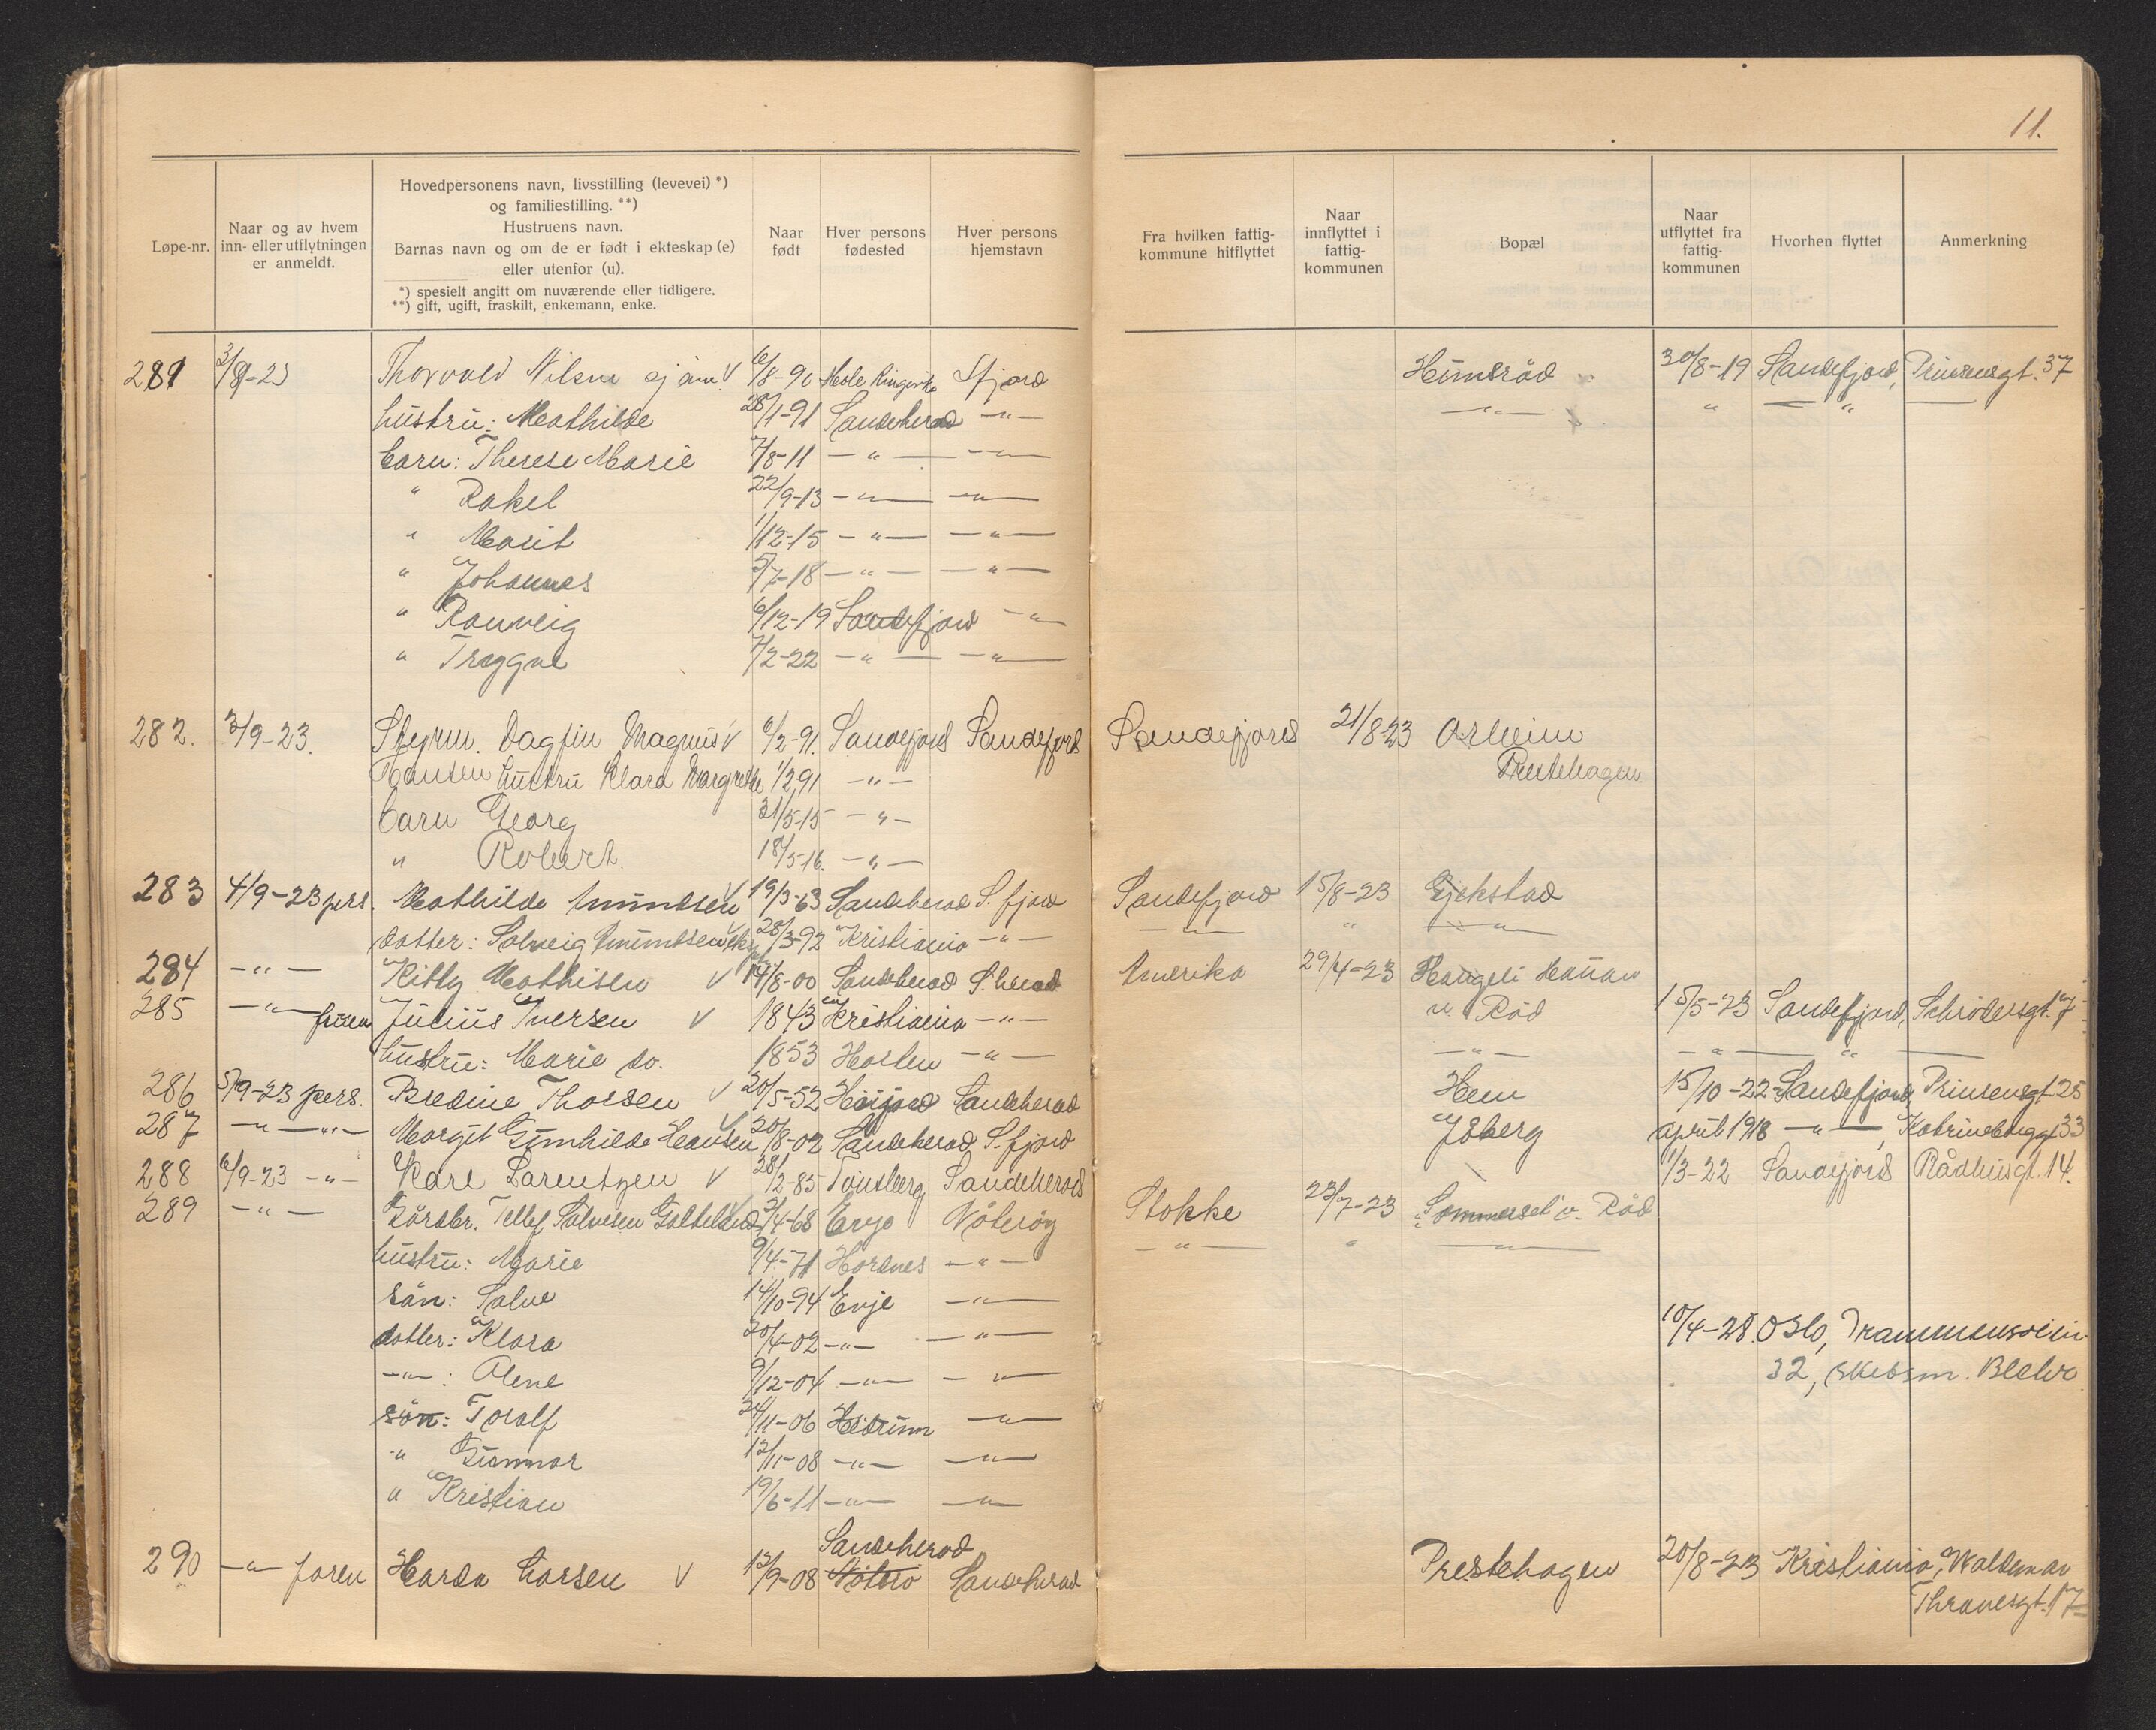 11.
Løpe-nr.
Naar og av hvem
inn- eller utflytningen
er anmeldt.
Hovedpersonens navn, livsstilling (levevei) *)
og familiestilling. **)
Hustruens navn.
Barnas navn og om de er født i ekteskap (e)
eller utenfor (u).
*) spesielt angitt om nuværende eller tidligere.
**) gift, ugift, fraskilt, enkemann, enke.
Naar
født
Hver persons
fødested
Hver persons
hjemstavn
Fra hvilken fattig-
kommune hitflyttet
Naar
innflyttet i
fattig-
kommunen
Bopæl
Naar
utflyttet fra
fattig-
kommunen
Hvorhen flyttet
Anmerkning
281 3/9-23 Thorvald Nilsen sjøm. V 6/8-90 Hole Ringerike Sfjord Himsröd 30/8-19 Sandefjord, Prinsensgt. 37
hustru: Mathilde 28/1-91 Sandeherad -"- -"- " -"-
barn: Therese Marie 7/8-11 -"- -"-
" Rakel 22/9-13 -"- -"-
" Marit 1/12-15 -"- -"-
" Johannes 5/7-18 -"- -"-
" Ranveig 6/12-19 Sandefjord -"-
" Tryggve 7/2-22 -"- -"-
282. 3/9-23. Styrm. Dagfin Magnus V 6/2-91. Sandefjord Sandefjord Sandefjord 21/8-23 Åsheim
Hansen hustru Klara Margrethe 1/2 91 -"- Prestehagen
barn Georg 31/5-15 -"-
" Robert. 18/5-16. -"-
283 4/9-23 pers. Mathilde Amundsen V 19/3-63 Sandeherad S. fjord Sandefjord 15/8-23 Gjekstad
datter: Solveig Amundsen 28/3-92 Kristiania -"- -"- " -"-
284 -"- Kitty Mathisen V 14/8-00 Sandeherad S. herad Amerika 29/4-23 Haugeli Haugan
285 -"- fruen Julius Iversen V 1843 Kristiania -"- v. Röd 15/5-23 Sandefjord, Schrödersgt. 7
hustru: Marie do. 1853 Horten -"- -"- -"- "
286 5/9-23 pers. Bredine Thorsen V 20/5-52 Höijord Sandeherad Hem 15/10-22 Sandefjord, Prinsensgt 25
287 -"- -"- Margit Gunhilde Hansen V 20/8-02 Sandeherad S. fjord Joberg april 1918 -"-, Katrineborggt 33
288 6/9-23 -"- Karl Larentzen V 28/2-85 Tönsberg Sandeherad 1/3-22 Sandefjord Rådhusgt. 14.
289 -"- Gårdbr. Tellef Salvesen V 3/4-68 Evje Nöteröy Stokke 23/7-23 "Sommerset" v. Röd
hustru: Marie 9/4-71 Hordnes -"- -"- " -"-
sön: Salve 14/10-94 Evje -"-
datter: Klara 20/4-02 -"- -"- 10/4-28. Oslo, Drammensvein
-"-: Olene 9/12-04 -"- -"- 32, skibsm. Blehr
sön: Toralf 24/11-06 Hedrum -"-
" Gunnar 12/11-08 -"- -"-
" Kristian 19/6-11 -"- -"-
Sandeherad
290 -"- faren Harda Larsen V 12/9-08 Nöterö Sandeherad Prestehagen 20/8-23 Kristiania, Waldemar
Thranesgt. 17